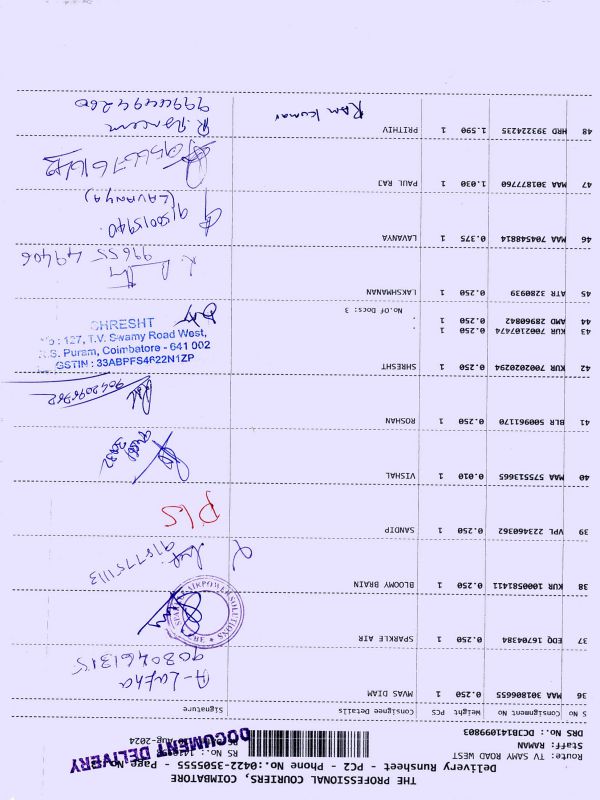 THE PROFESSIONAL COURIERS, COIMBATORE
Delivery Runsheet - PC2 - Phone No.:0422-3505555 - Page No.
Route: TV SAMY ROAD WEST
Staff: RAMAN
DRS No.: DCJB141099803
RS No.:
Aug-2024
DOCUMENT DELIVERY
S No Consignment No Weight PCS Consignee Details Signature
36 MAA 301806655 0.250 1 MVAS DIAM
9080461315
37 EDQ 16704384 0.250 1 SPARKLE AIR
SPARKLE AIRPOWER SOLUTIONS
38 KUR 1000581411 0.250 1 BLOOMY BRAIN
9187751113
39 VPL 223460362 0.250 1 SANDIP
PLS
40 MAA 575513665 0.010 1 VISHAL
41 BLR 500961170 0.250 1 ROSHAN
42 KUR 7002020294 0.250 1 SHRESHT
SHRESHT
No : 127, T.V. Swamy Road West,
R.S. Puram, Coimbatore - 641 002
GSTIN : 33ABPFS4622N1ZP
43 KUR 7002107474 0.250 1 .
44 AMD 28960842 0.250 1 .
No.Of Docs: 3
45 ATR 3280939 0.250 1 LAKSHMANAN
99655 49406
46 MAA 704548814 0.375 1 LAVANYA
9150015940.
(LAVANYA)
47 MAA 301877760 1.030 1 PAUL RAJ
48 HRD 393224235 1.590 1 PRITHIV
Ram Kumar
9944494260